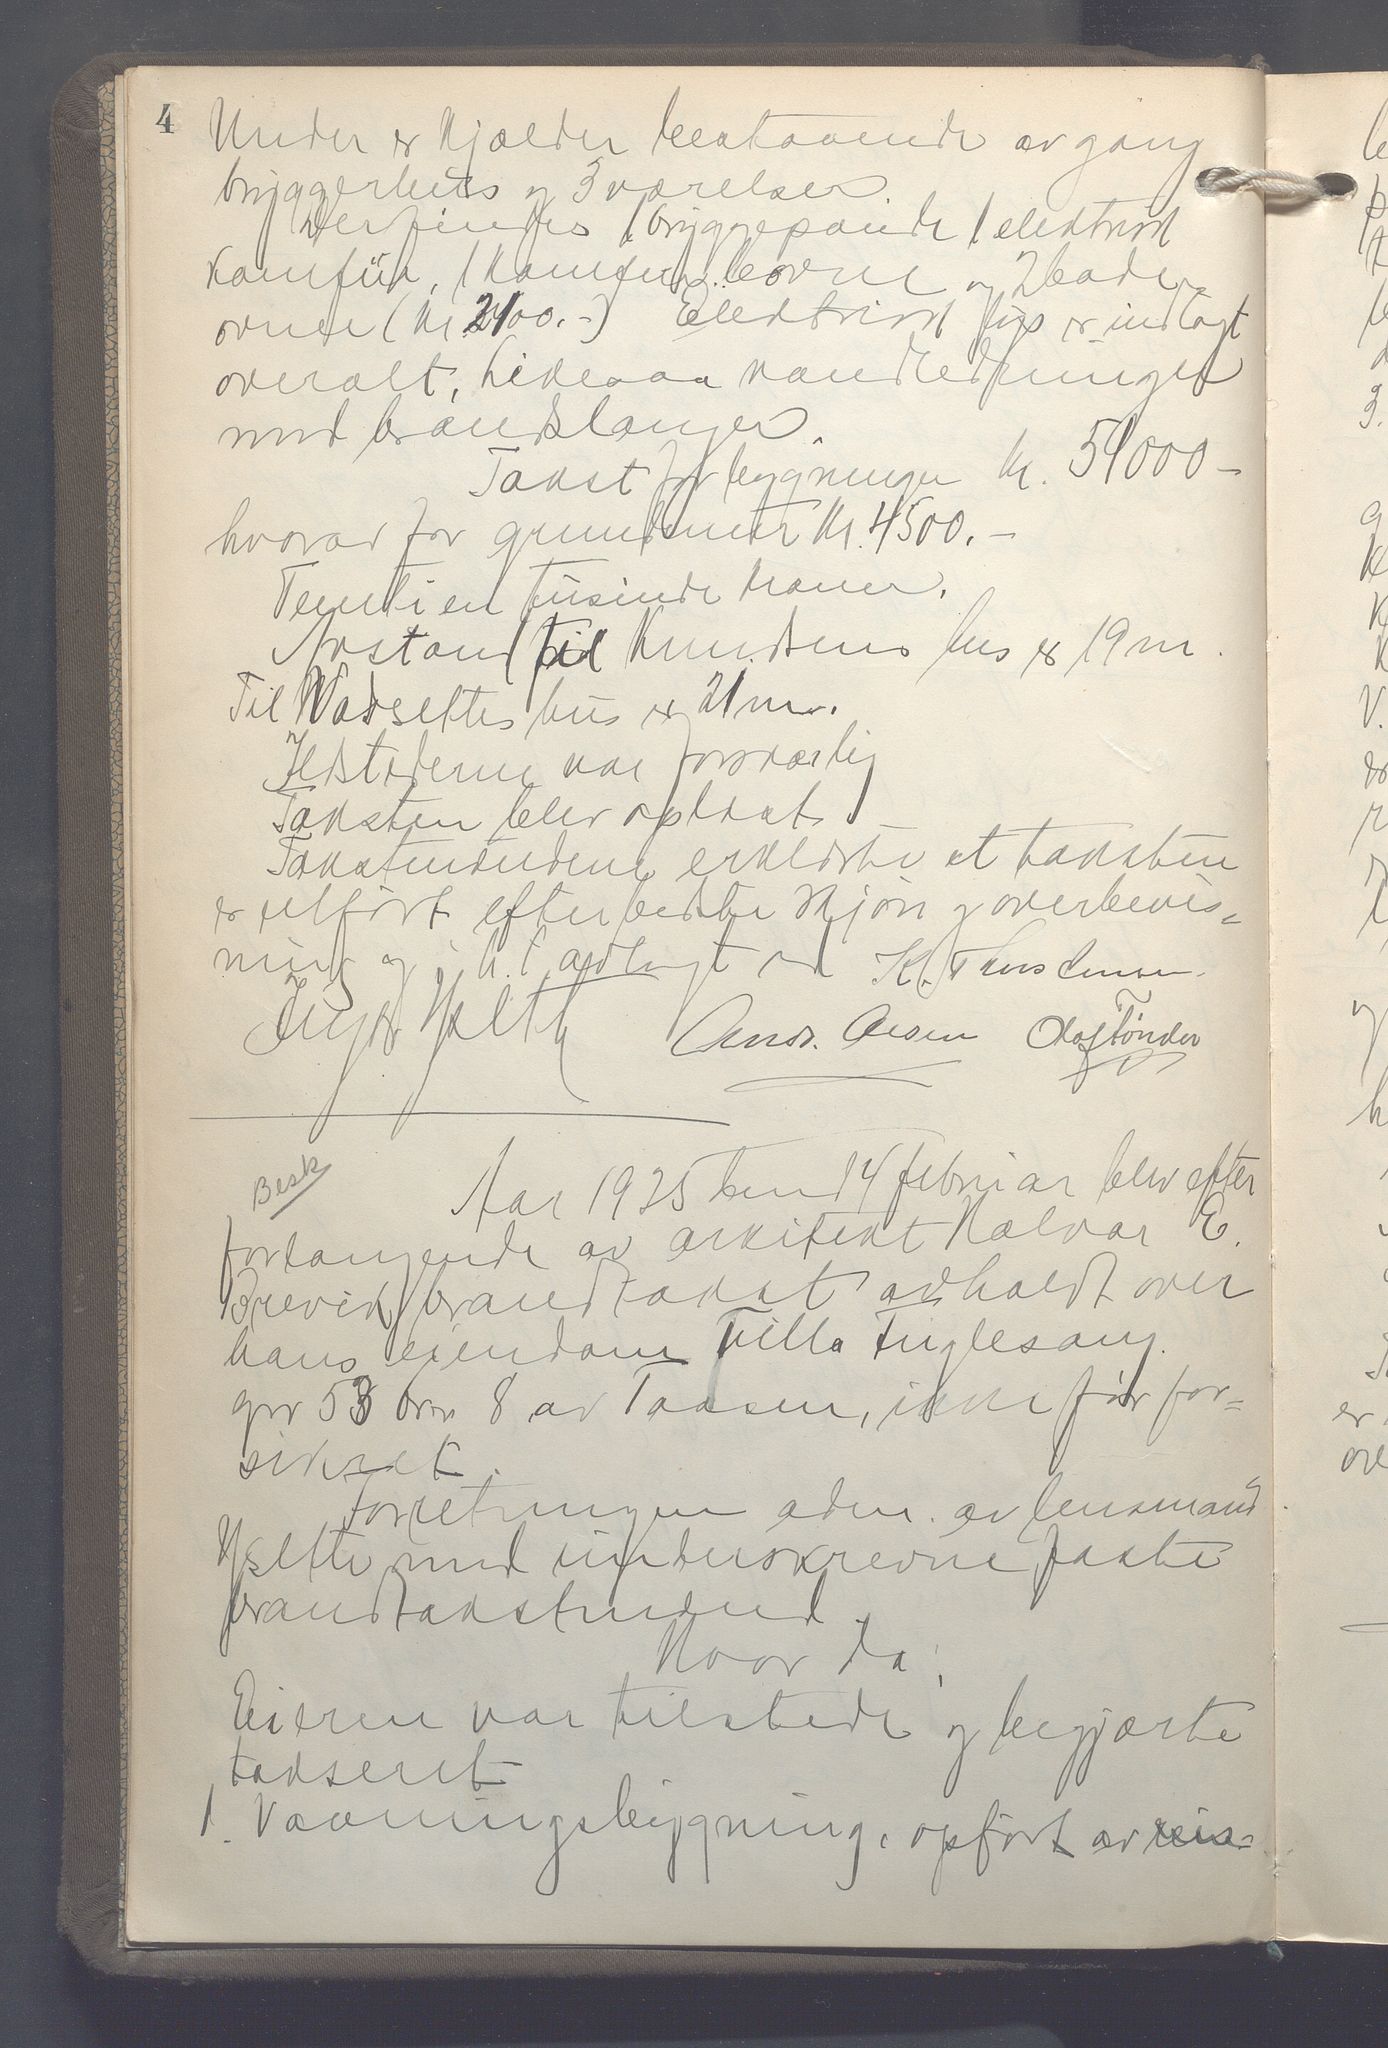 4
Under er kjælder bestaaende av gang
bryggerhus og 3 værelser.
Der findes 1 bryggepande 1 elektrisk
komfür, 1 komfur, ovne og 2 bade
ovner (kr 2100.-) Elektrisk lys er indlagt
overalt, likesaa vandledninger
med brandslanger.
Takst for bygningen kr. 51000-
hvorav for grundmur kr. 4500.-
Femti en tusinde kroner.
Avstand til Knudsens hus er 19 m.
Til Wadseltes hus er 21 m.
Ildstederne var forsvarlig
Taksten blev oplæst.
Takstmændene erklærte at taksten
er utført efter bedste skjøn og overbevis=
ning og avlagt ed K. Thorsensen.
Ysletty Andr. Olsen Olaf Tönder
Besk
Aar 1925 den 14 februar blev efter
forlangende av arkitekt Halvar E.
Brevik brandtakst avholdt over
hans eiendom Villa Fuglesang.
gnr 53 brn 8 av Taasen, ikke før for=
sikret.
Forretningen adm. av lensmand
Ysletty med underskrevne faste
brandtakstmænd.
Hvor da,
Eieren var tilstede og begjærte
takseret
1. Vaaningsbygning, opført av reis=